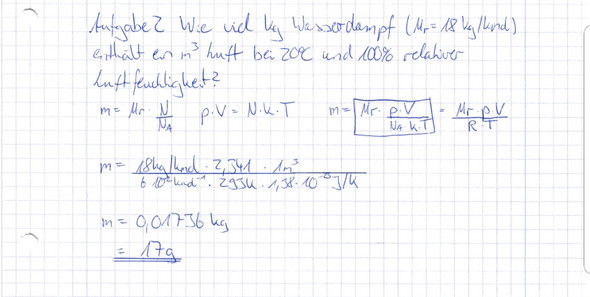 Aufgabe 2 Wie viel kg Wasserdampf (Mr = 18 kg/kmol)
enthält ein m³ Luft bei 20°C und 100% relativer
Luftfeuchtigkeit?
m = Mr · N/NA p·V = N·k·T m = Mr · p·V / NA k·T = Mr · p·V / R·T
m = 18kg/kmol · 2,341 · 1m³
6 kmol⁻¹ · 293K · 1,38·10⁻²³ J/K
m = 0,01736 kg
= 17g